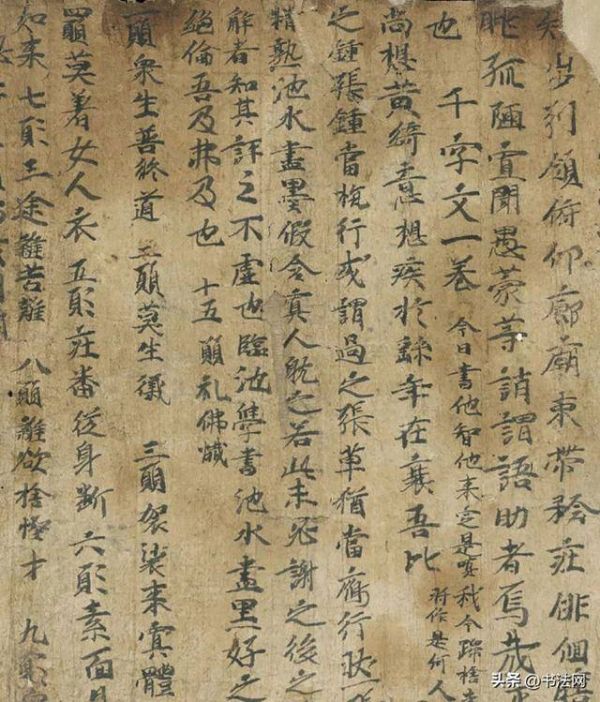 步引領俯仰廊廟束帶矜莊俳佪
眺孤陋寡聞愚蒙等誚謂語助者焉哉
也 千字文一卷 今日書他智他来定是嗔我今
將作是何人
尚想黃綺意想疾於繇年在襄吾比
之鍾張鍾當抗行或謂過之張草猶當鴈行
精熟池水盡墨假令寡人耽之若此未必謝之後之
解者知其評之不虛也臨池學書池水盡黑好之
絕倫吾及弗及也 十五願礼佛懺
一願衆生善於道 二願莫生儀 三願袈裟来實體
四願莫著女人衣 五願莊番從身斷 六願素面
知来 七願三途離苦難 八願離欲捨慳才 九願
头条 @书法网